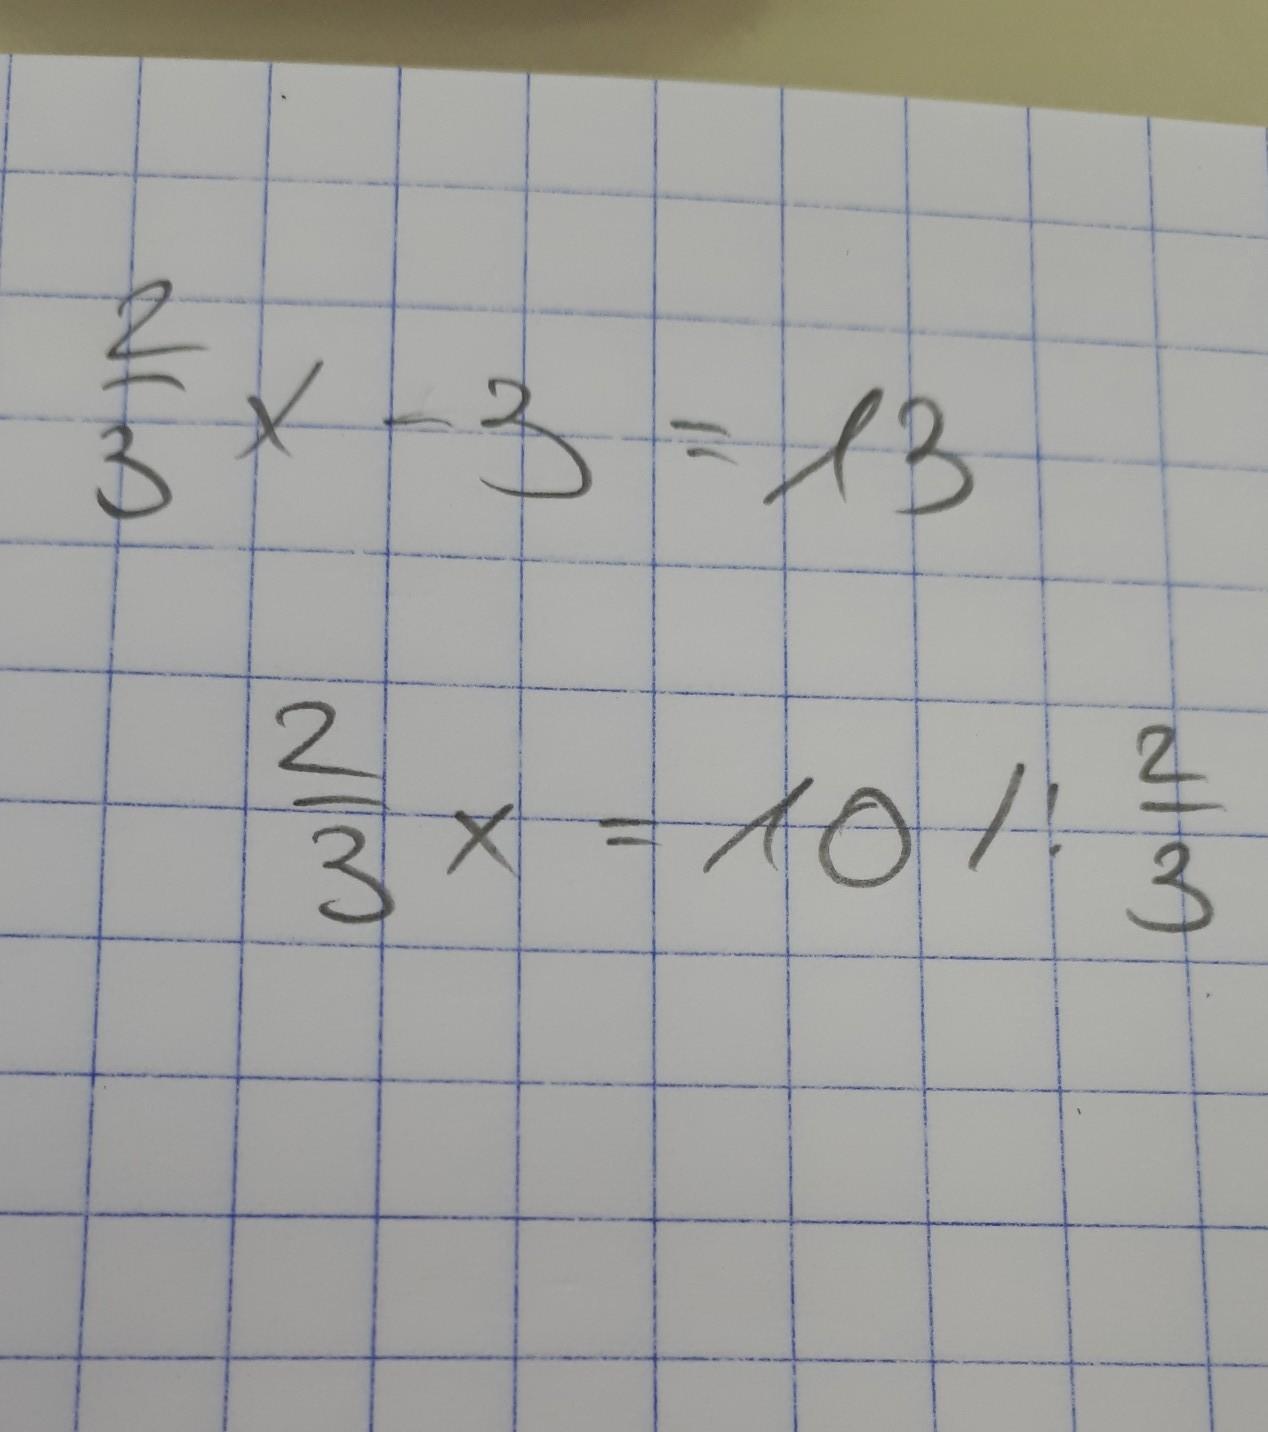 2/3 x - 3 = 13
2/3 x = 10 / : 2/3